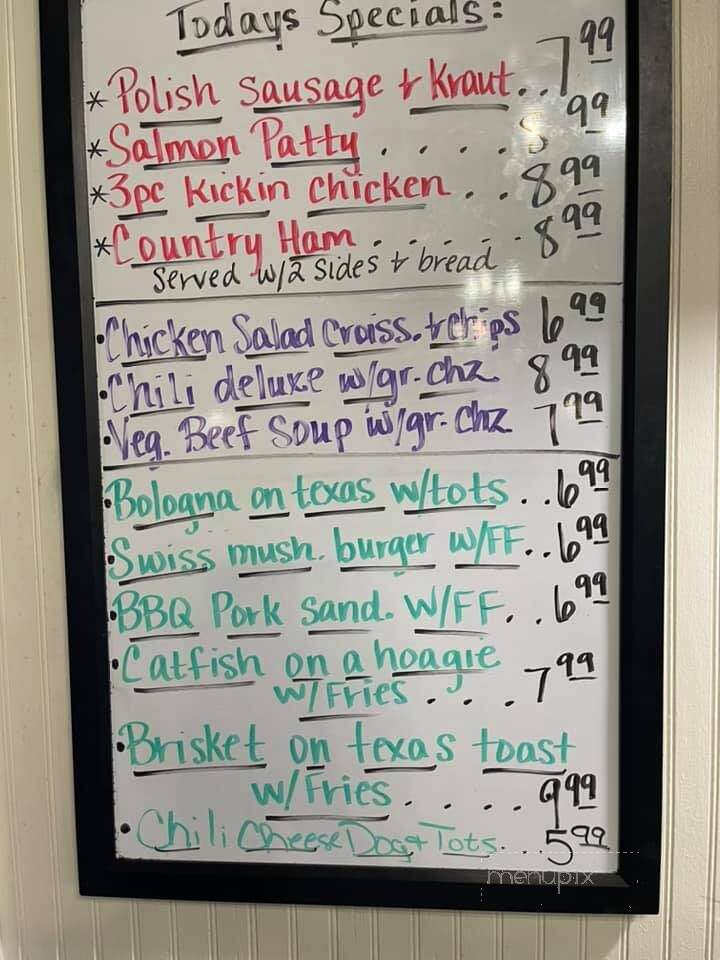 Todays Specials:
* Polish Sausage & Kraut.. 7 99
* Salmon Patty . . . . 8 99
* 3pc kickin chicken . . 8 99
* Country Ham . . . . . . 8 99
Served w/2 sides & bread
• Chicken Salad Croiss. & chips 6 99
• Chili deluxe w/gr. chz 8 99
• Veg. Beef Soup w/gr. chz 7 99
• Bologna on texas w/tots . . 6 99
• Swiss mush. burger w/FF. . 6 99
• BBQ Pork sand. W/FF. . . 6 99
• Catfish on a hoagie
w/Fries . . . . 7 99
• Brisket on texas toast
w/Fries . . . . . 9 99
• Chili Cheese Dog + Tots. . . 5 99
menupix